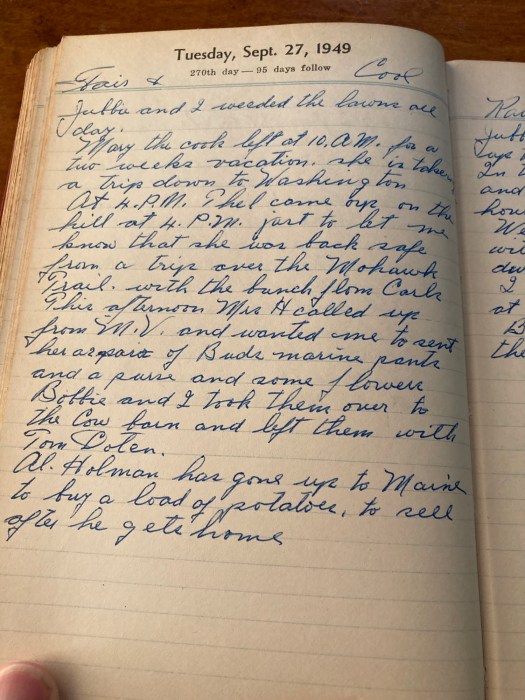 Tuesday, Sept. 27, 1949
270th day — 95 days follow
Fair & Cool
Jubbie and I weeded the lawns all
day.
Mary the cook left at 10. A.M. for a
two weeks vacation. she is taken
a trip down to Washington
At 4. P.M. Thel came up on the
hill at 4. P.M. just to let me
know that she was back safe
from a trip over the Mohawk
Trail. with the bunch from Carls
This afternoon Mrs H called up
from M.V. and wanted me to sent
her a pair of Buds marine pants
and a purse and some flowers
Bobbie and I took them over to
the Cow barn and left them with
Tom Dolen.
Al. Holman has gone up to Maine
to buy a load of potatoes. to sell
after he gets home
Jubb
up
In t
and
hou
We
wil
du
I
at
B
the